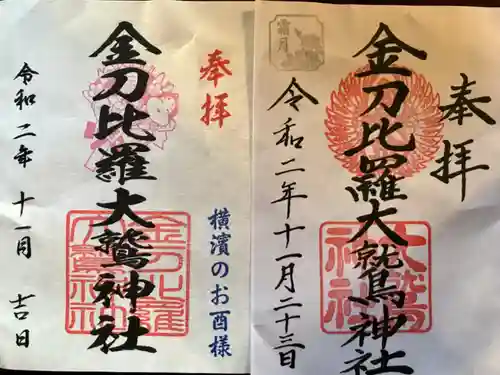 奉拝
金刀比羅大鷲神社
横濱のお酉様
令和二年十一月吉日
霜月
奉拝
金刀比羅大鷲神社
令和二年十一月二十三日
大鷲神社